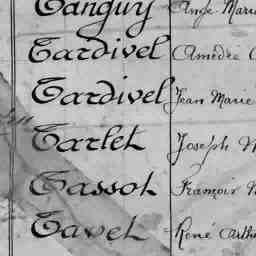 Tanguy Ange Marie
Tardivel Amédée
Tardivel Jean Marie
Tarlet Joseph M
Tassot François
Tavel René Arth